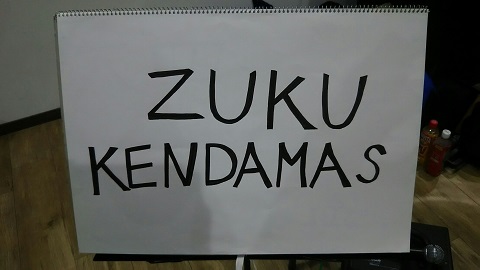 ZUKU
KENDAMAS